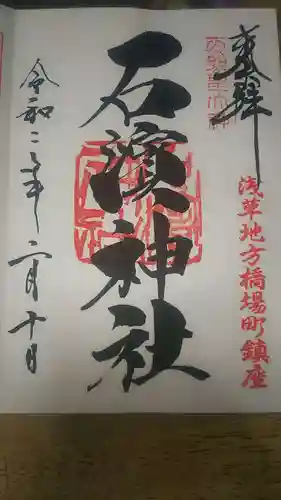 奉拝
浅草地方橋場町鎮座
石濱神社
令和二年二月十日